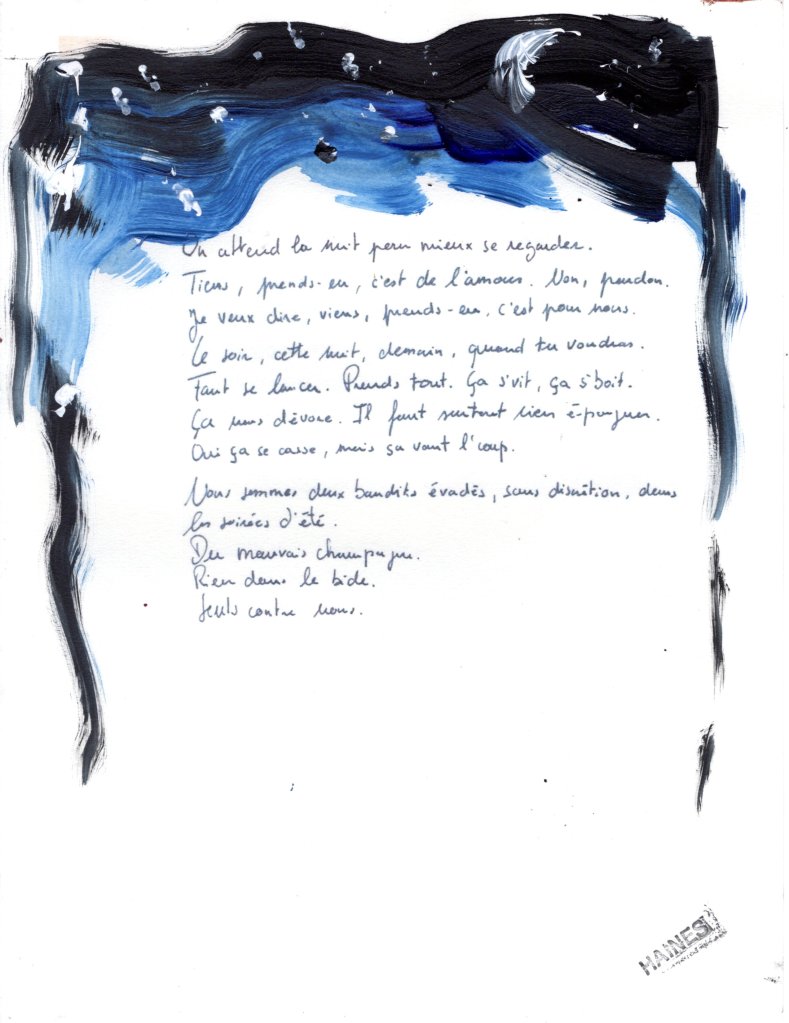 On attend la nuit pour mieux se regarder.
Tiens, prends-en, c'est de l'amour. Non, pardon.
Je veux dire, viens, prends-en, c'est pour nous.
Ce soir, cette nuit, demain, quand tu voudras.
Faut se lancer. Prends tout. Ça s'vit, ça s'boit.
Ça nous dévore. Il faut surtout rien é-pargner.
Oui ça se casse, mais ça vaut l'coup.
Nous sommes deux bandits évadés, sans discrétion, dans
les soirées d'été.
Du mauvais champagne.
Rien dans le bide.
Seuls contre nous.
HAINES